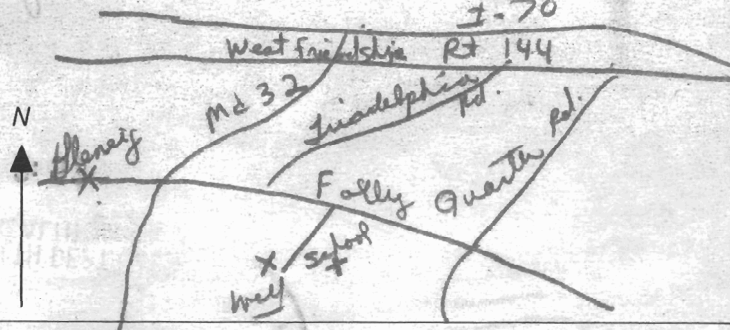 I-70
West Friendship Rt 144
Md 32
Triadelphia Rd.
N
Glenelg
x
Folly Quarter Rd.
x School
+
Well